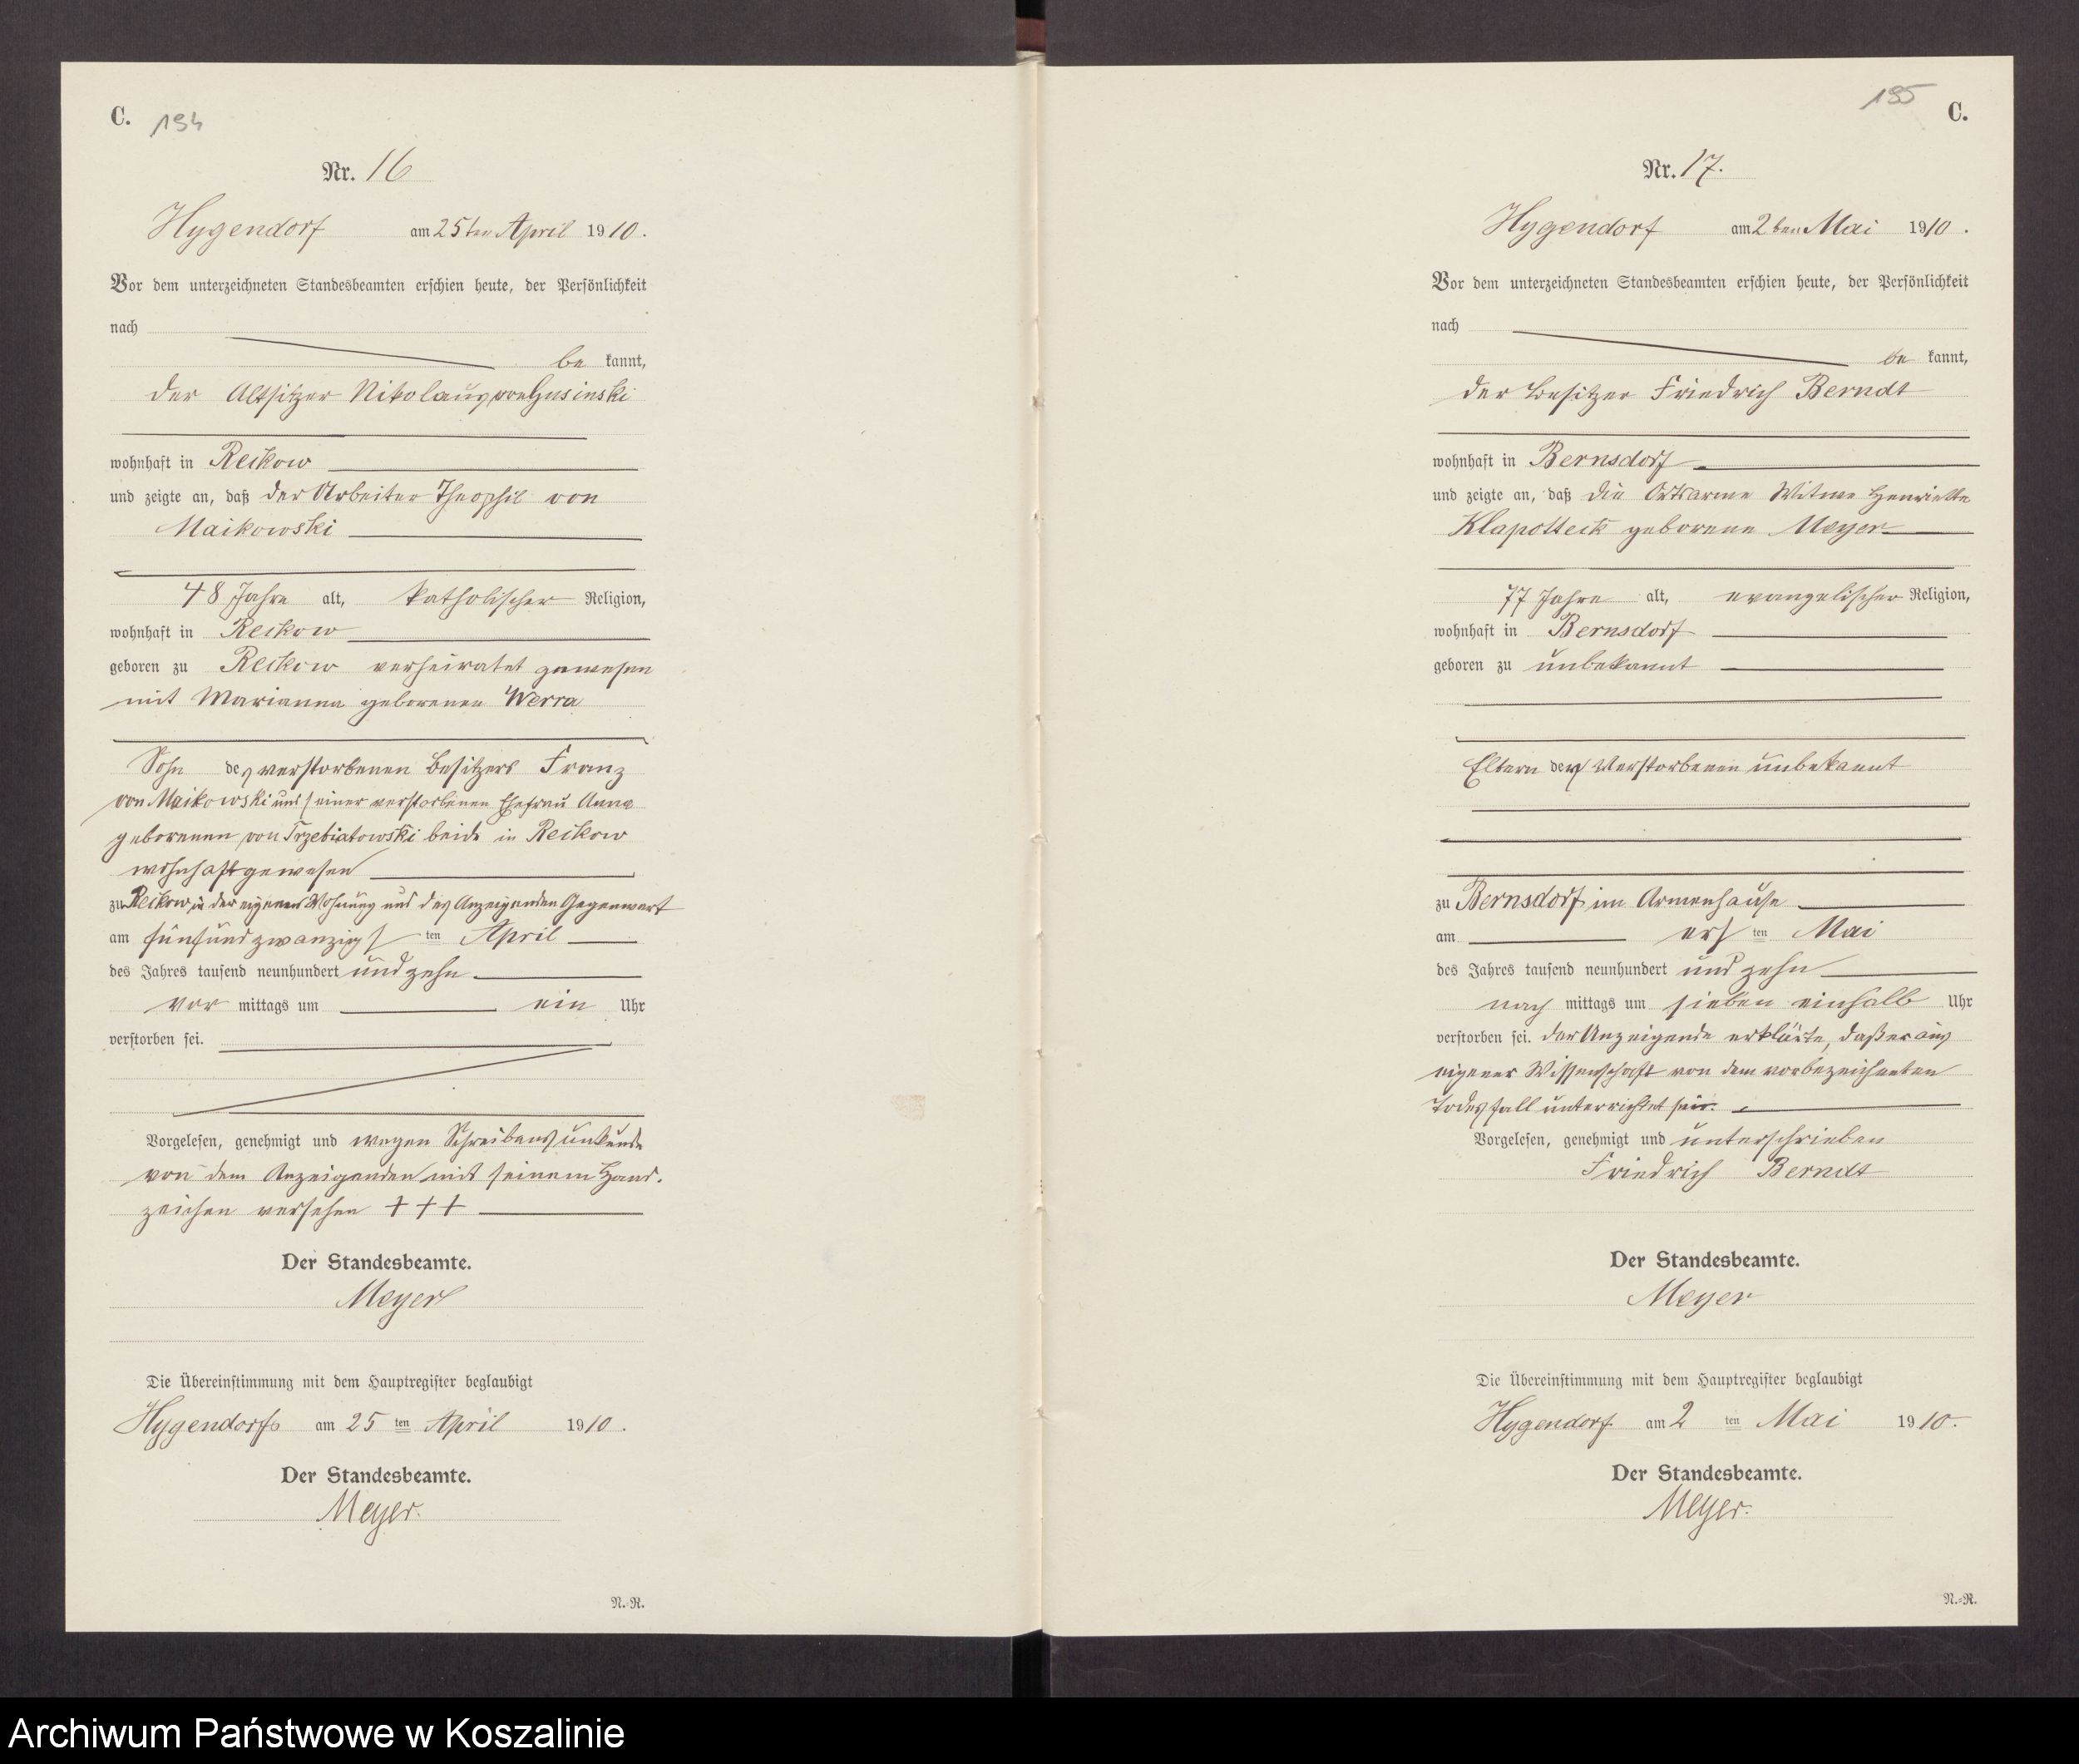 C. 194
Nr. 16
Hygendorf am 25ten April 1910.
Vor dem unterzeichneten Standesbeamten erschien heute, der Persönlichkeit
nach
be kannt,
der Altsitzer Nikolaus von Gusinski
wohnhaft in Reikow
und zeigte an, daß der Arbeiter Theophil von
Maikowski
48 Jahre alt, katholischer Religion,
wohnhaft in Reikow
geboren zu Reikow verheiratet gewesen
mit Marianna geborenen Werra
Sohn des verstorbenen Besitzers Franz
von Maikowski und seiner verstorbenen Ehefrau Anna
geborenen von Trzebiatowski beide in Reikow
wohnhaft gewesen
zu Reikow in der eigenen Wohnung und des Anzeigenden Gegenwart
am fünfundzwanzigs ten April
des Jahres tausend neunhundert und zehn
vor mittags um ein Uhr
verstorben sei.
Vorgelesen, genehmigt und wegen Schreibensunkunde
von dem Anzeigenden mit seinem Hand-
zeichen versehen + + +
Der Standesbeamte.
Meyer
Die Übereinstimmung mit dem Hauptregister beglaubigt
Hygendorf am 25 ten April 1910.
Der Standesbeamte.
Meyer.
N.-R.
195 C.
Nr. 17.
Hygendorf am 2ten Mai 1910.
Vor dem unterzeichneten Standesbeamten erschien heute, der Persönlichkeit
nach
be kannt,
der Besitzer Friedrich Berndt
wohnhaft in Bernsdorf
und zeigte an, daß die Ortsarme Witwe Henriette
Klapotteck geborene Meyer
77 Jahre alt, evangelischer Religion,
wohnhaft in Bernsdorf
geboren zu unbekannt
Eltern der Verstorbenen unbekannt
zu Bernsdorf im Armenhause
am ers ten Mai
des Jahres tausend neunhundert und zehn
nach mittags um sieben einhalb Uhr
verstorben sei. Der Anzeigende erklärte, daß er aus
eigener Wissenschaft von dem vorbezeichneten
Todesfall unterrichtet sei.
Vorgelesen, genehmigt und unterschrieben
Friedrich Berndt
Der Standesbeamte.
Meyer
Die Übereinstimmung mit dem Hauptregister beglaubigt
Hygendorf am 2 ten Mai 1910.
Der Standesbeamte.
Meyer.
N.-R.
Archiwum Państwowe w Koszalinie